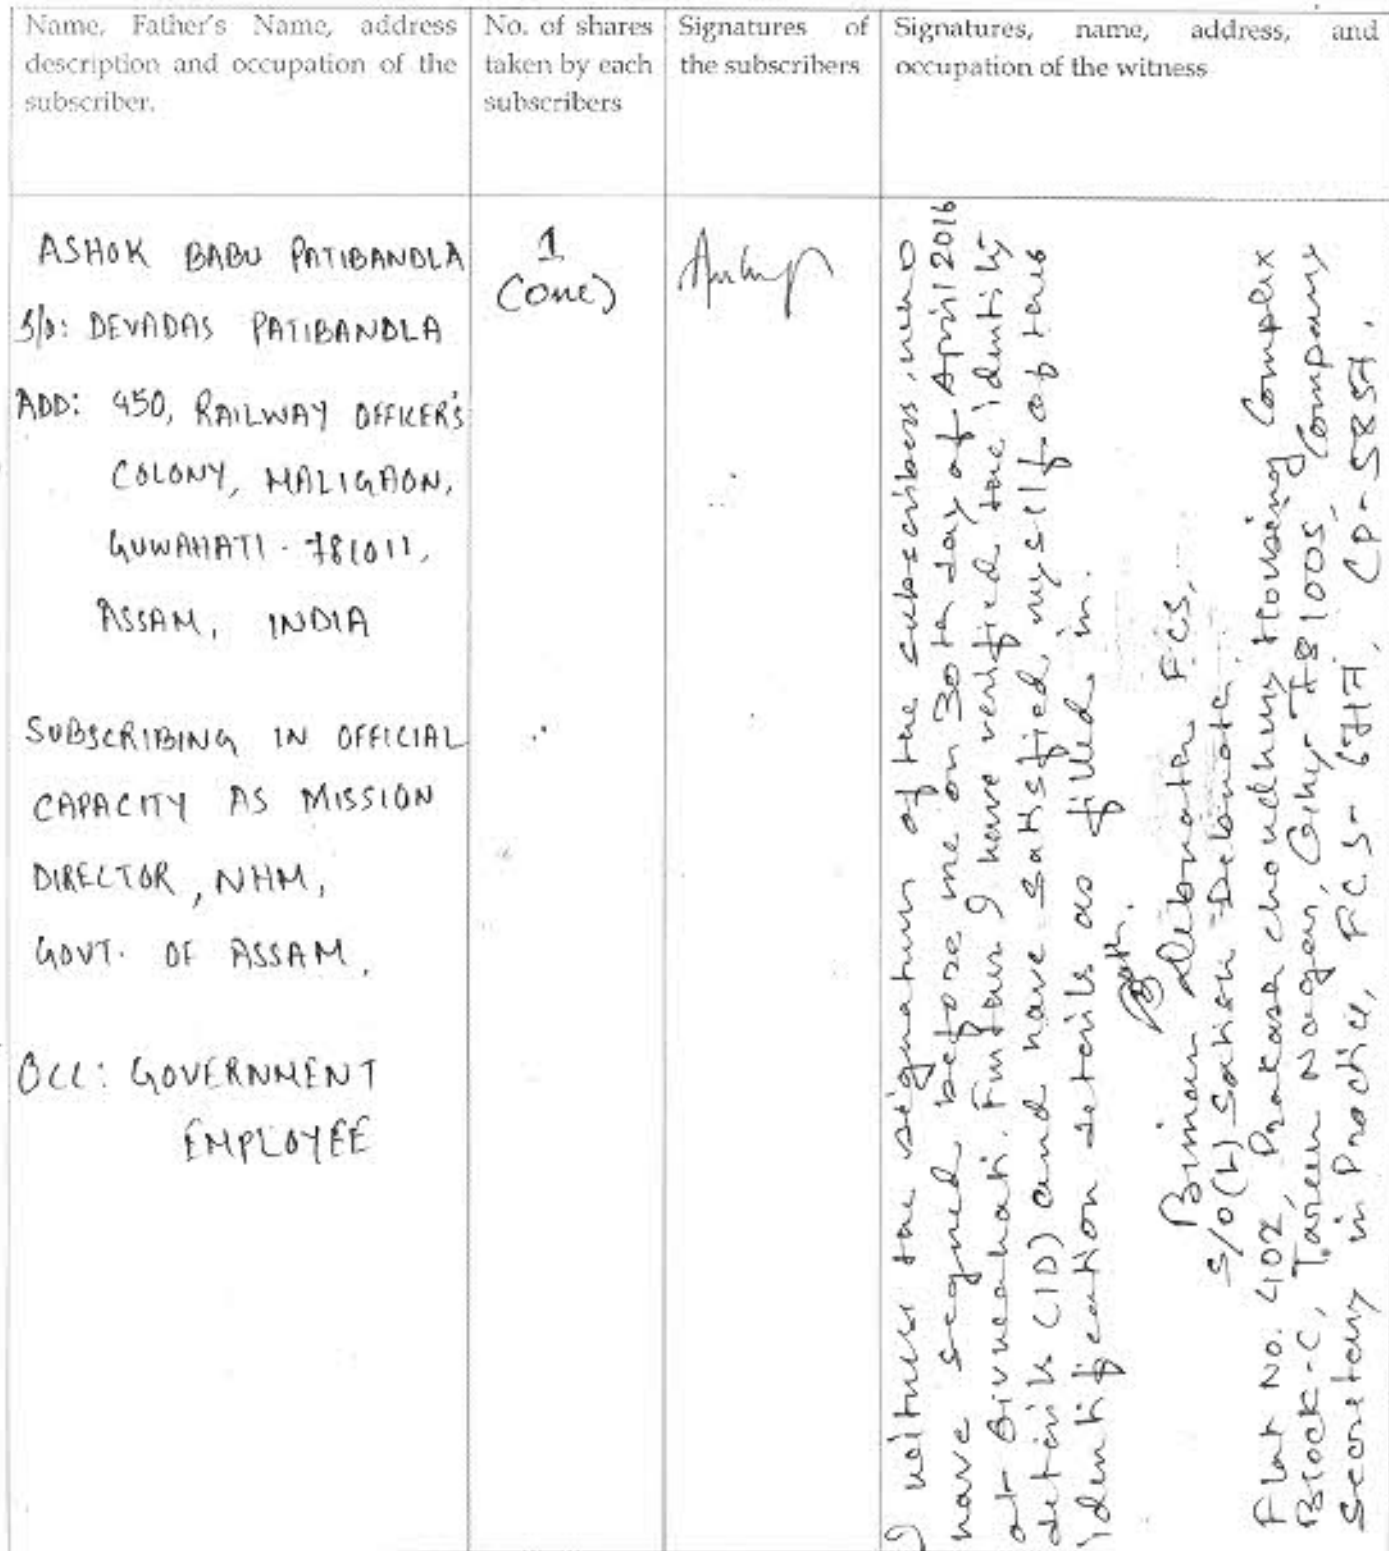 Name, Father's Name, address
description and occupation of the
subscriber.
No. of shares
taken by each
subscribers
Signatures of
the subscribers
Signatures, name, address, and
occupation of the witness
ASHOK BABU PATIBANDLA
S/O: DEVADAS PATIBANDLA
ADD: 450, RAILWAY OFFICER'S
COLONY, MALIGAON,
GUWAHATI - 781011,
ASSAM, INDIA
SUBSCRIBING IN OFFICIAL
CAPACITY AS MISSION
DIRECTOR, NHM,
GOVT. OF ASSAM.
OCC: GOVERNMENT
EMPLOYEE
1
(one)
I witness the signature of the subscribers, who
have signed before me on 30th day of April 2016
at Guwahati. Further I have verified the identity
details (ID) and have satisfied myself of the
identification details as filled in.
Biman Debnath FCS,
S/O (L) Satish Debnath.
Flat No. 402, Prakash Choudhury Housing Complex
Block-C, Tareen Nagar, Ghy-781005, Company
Secretary in Practice, FCS- 6717, CP- 5857.